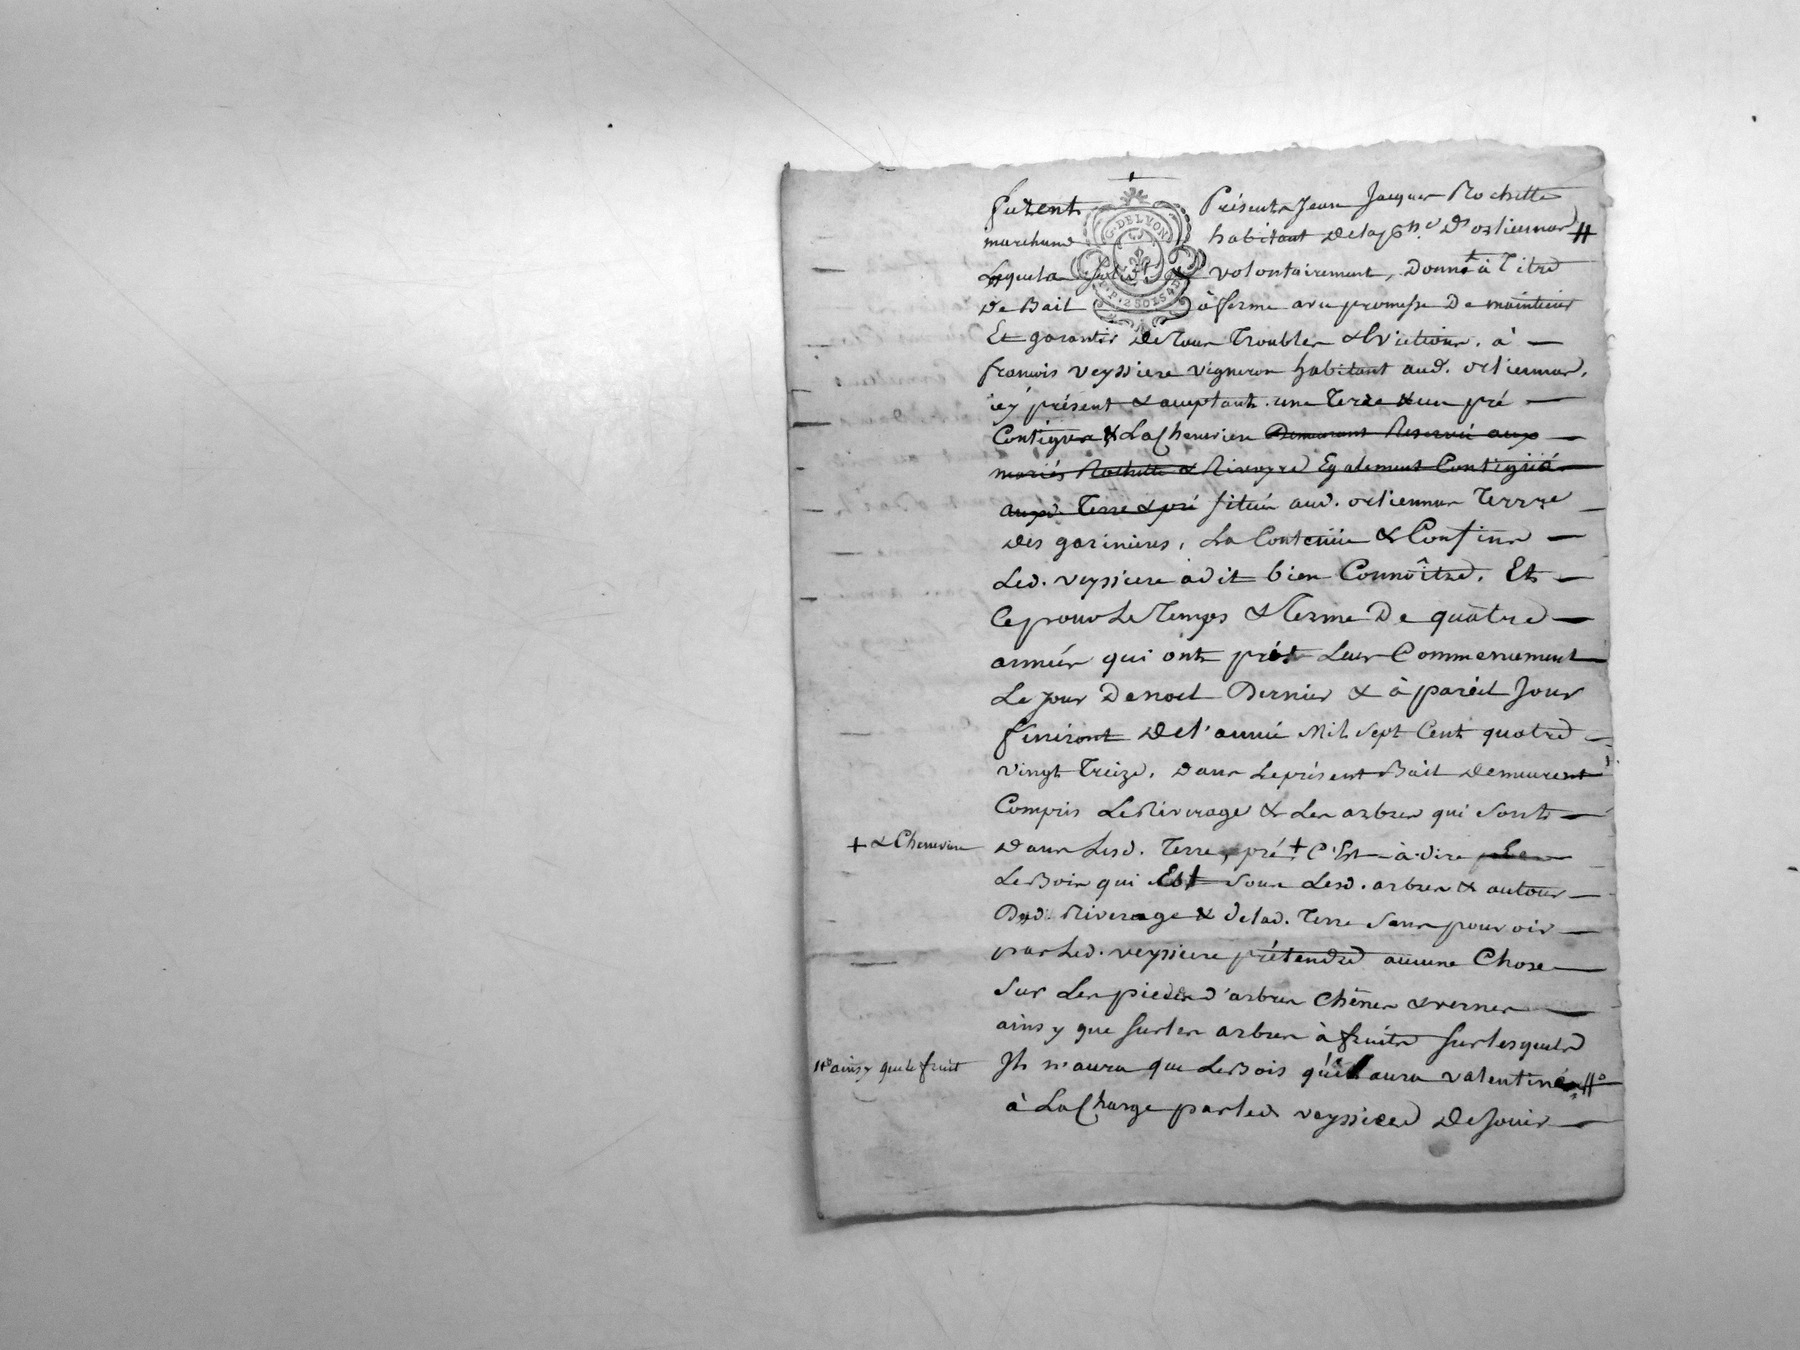 furent Présents Jean Jacques Rochette
marchand habitant de la psse d'orliennas #
Lequel a volontairement, donné à titre
De Bail à ferme avec promesse De maintenir
Et garantir De tous Troubles & Evictions. à —
françois veyssiere vigneron habitant aud. orliennas,
icy présent & acceptant. une Terre & un pré —
Contigus & La Cheneviere Demeurant Reservée aux —
mariés Rochette & Riveyre Egalement Contigüé
auxd. Terre & pré située aud. orliennas Terroe
des garinieres, La Contenüe & Confins —
Led. veyssiere a dit bien Connoître. Et —
Ce pour Le Temps & Terme De quatre —
années qui ont pris Leur Commencement
Le jour De noel Dernier & à pareil Jour
finiront De l'année Mil Sept Cent quatre —
vingt Treize. Dans Le présent Bail demeurent
Compris Le Riverage & Les arbres qui Sont —
+ & Cheneviere
Dans Lesd. Terre, pré + C'Est-à-dire
Le Bois qui Est Sous Lesd. arbres & autour —
Dud. Riverage & de lad. Terre Sans pouvoir —
par Led. veyssiere prétendre aucune Chose —
Sur Les pieds d'arbres Chênes & vernes —
ainsy que Sur les arbres à fruits Sur lesquels
#° ainsy que le fruit
Il n'aura que Le Bois qu'il aura valentiné #°
à La Charge par led veyssiere De Jouir —
G. DELYON
2 SOLS 4 D.